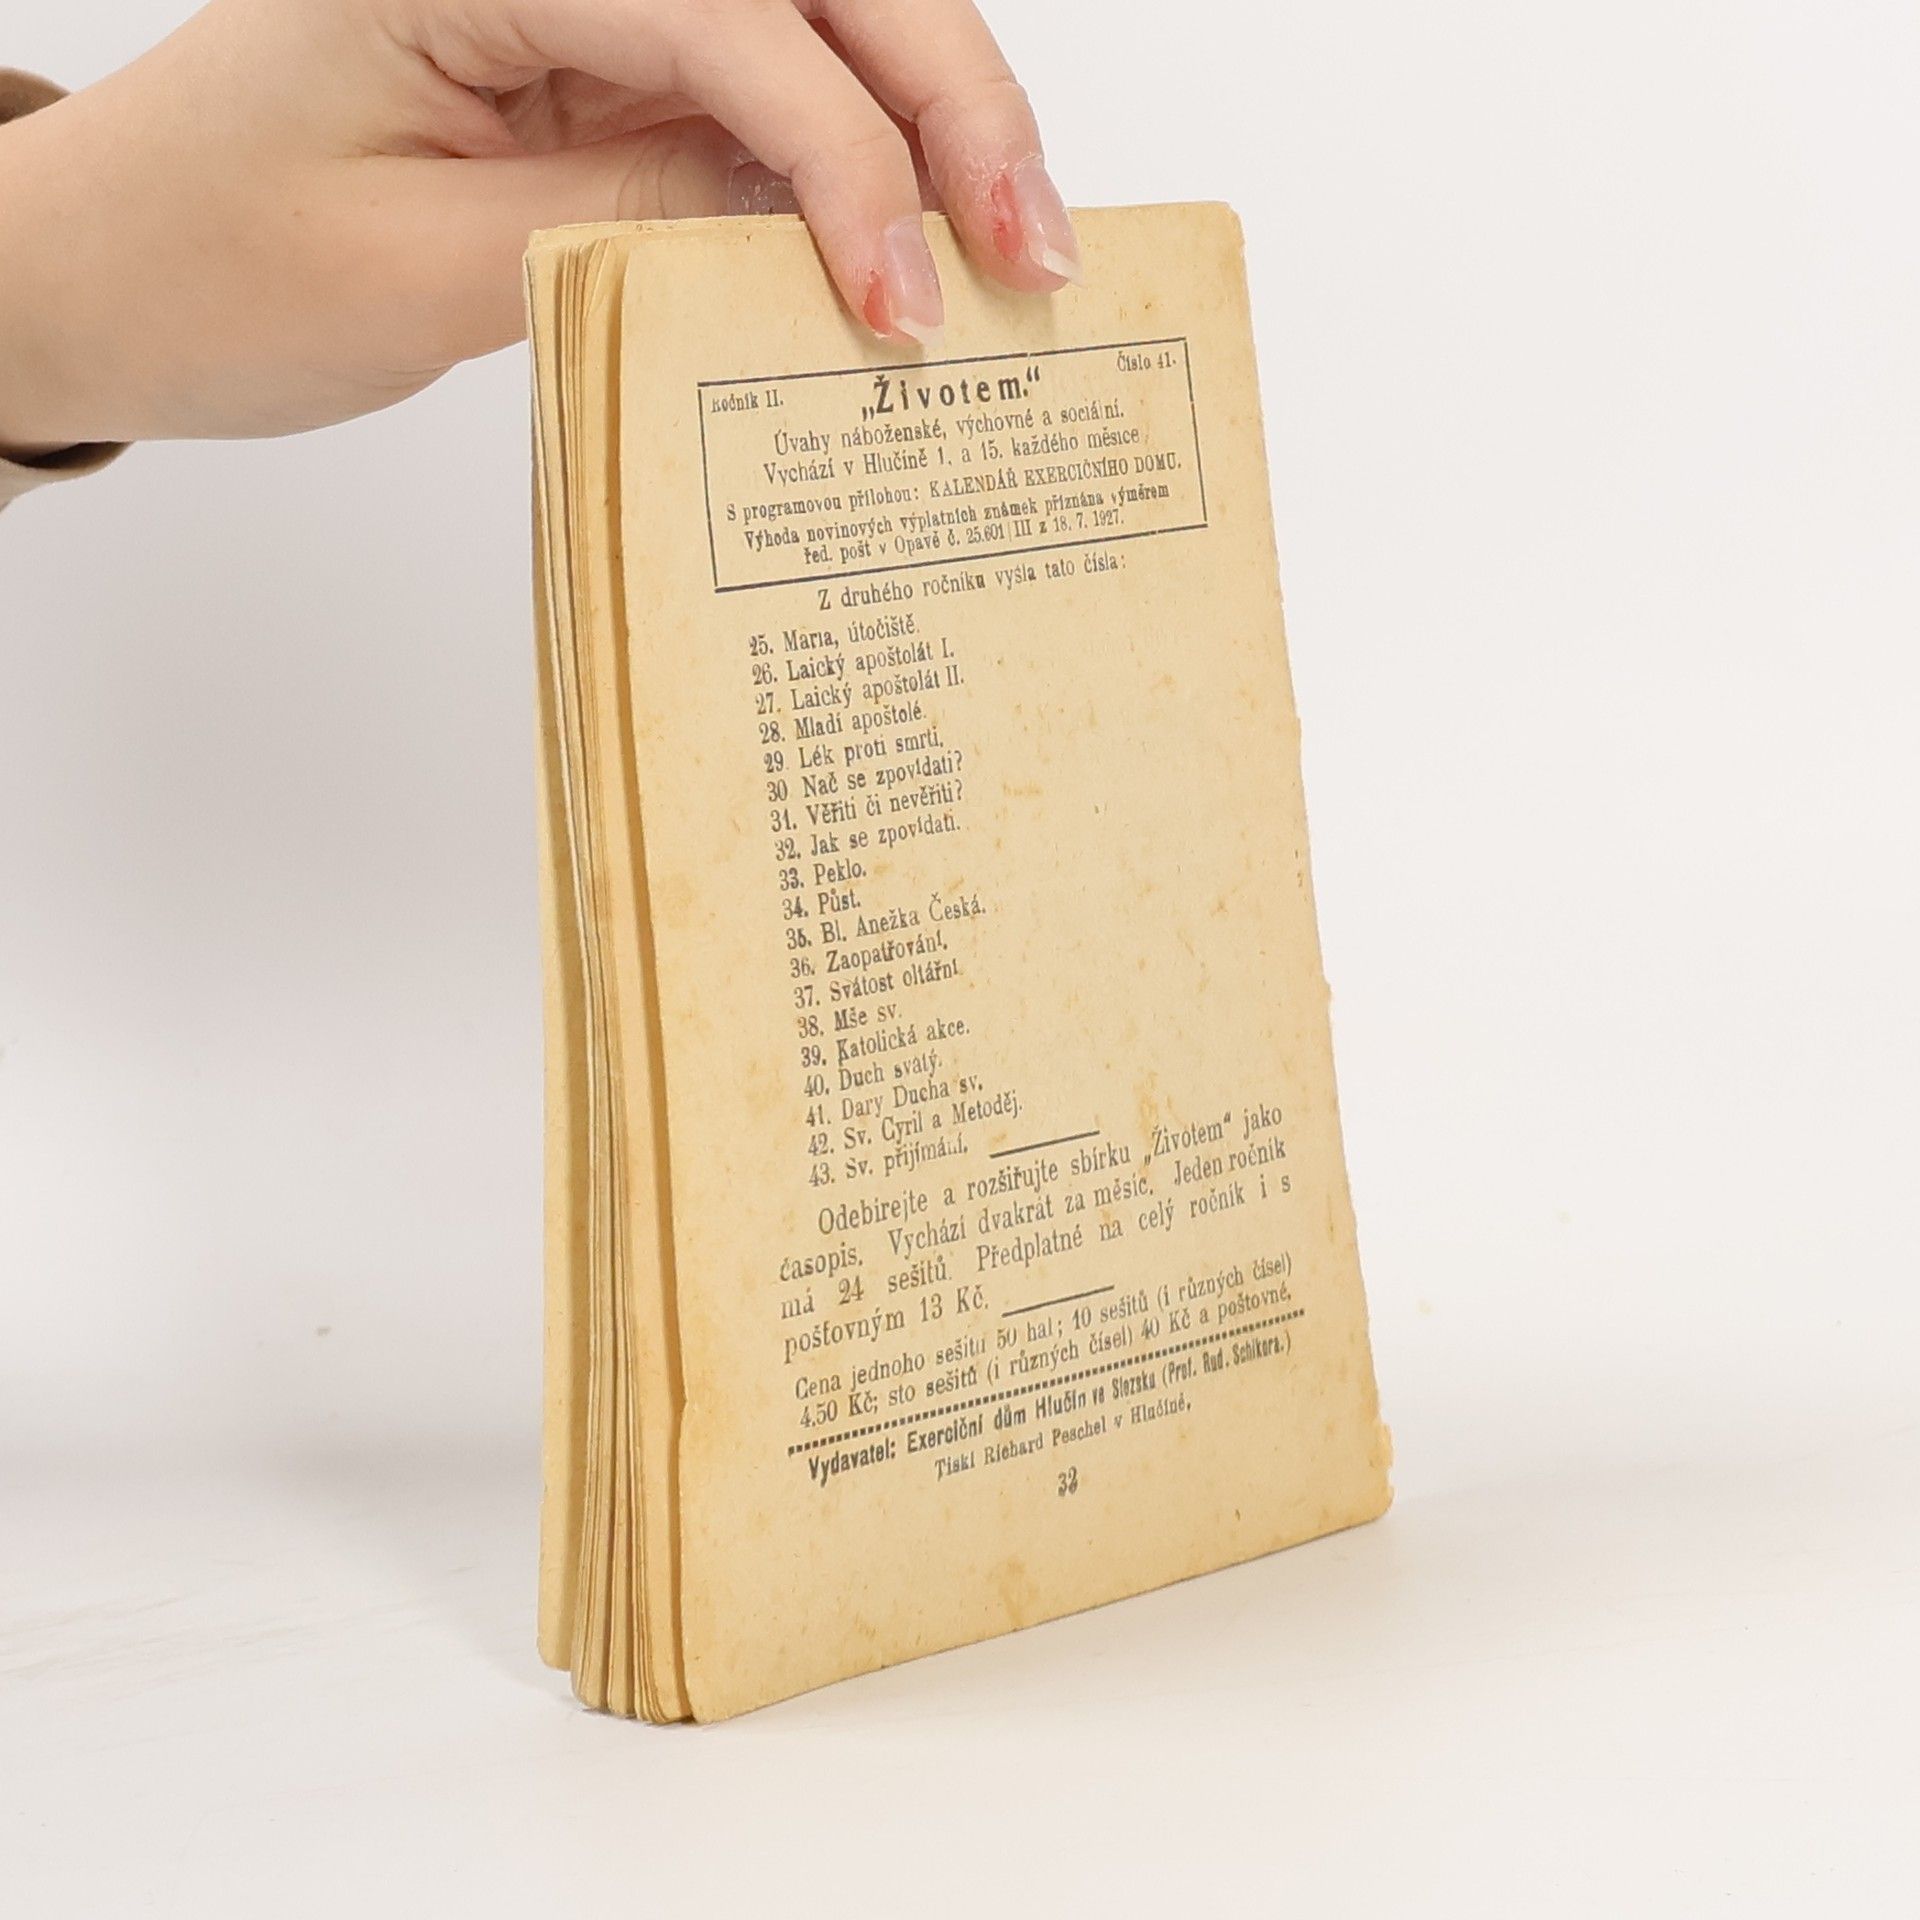 Ročník II.
„Životem.“
Číslo 41.
Úvahy náboženské, výchovné a sociální.
Vychází v Hlučíně 1. a 15. každého měsíce.
S programovou přílohou: KALENDÁŘ EXERCIČNÍHO DOMU.
Výhoda novinových výplatních známek přiznána výměrem
řed. pošt v Opavě č. 25.601/III z 18. 7. 1927.
Z druhého ročníku vyšla tato čísla:
25. Maria, útočiště.
26. Laický apoštolát I.
27. Laický apoštolát II.
28. Mladí apoštolé.
29. Lék proti smrti.
30 Nač se zpovídati?
31. Věřiti či nevěřiti?
32. Jak se zpovídati.
33. Peklo.
34. Půst.
35. Bl. Anežka Česká.
36. Zaopatřování.
37. Svátost oltářní
38. Mše sv.
39. Katolická akce.
40. Duch svatý.
41. Dary Ducha sv.
42. Sv. Cyril a Metoděj.
43. Sv. přijímání.
Odebírejte a rozšiřujte sbírku „Životem“ jako
časopis. Vychází dvakrát za měsíc. Jeden ročník
má 24 sešitů. Předplatné na celý ročník i s
poštovným 13 Kč.
Cena jednoho sešitu 50 hal; 10 sešitů (i různých čísel)
4.50 Kč; sto sešitů (i různých čísel) 40 Kč a poštovné.
Vydavatel: Exerciční dům Hlučín ve Slezsku (Prof. Rud. Schikora.)
Tiskl Richard Peschel v Hlučíně.
32